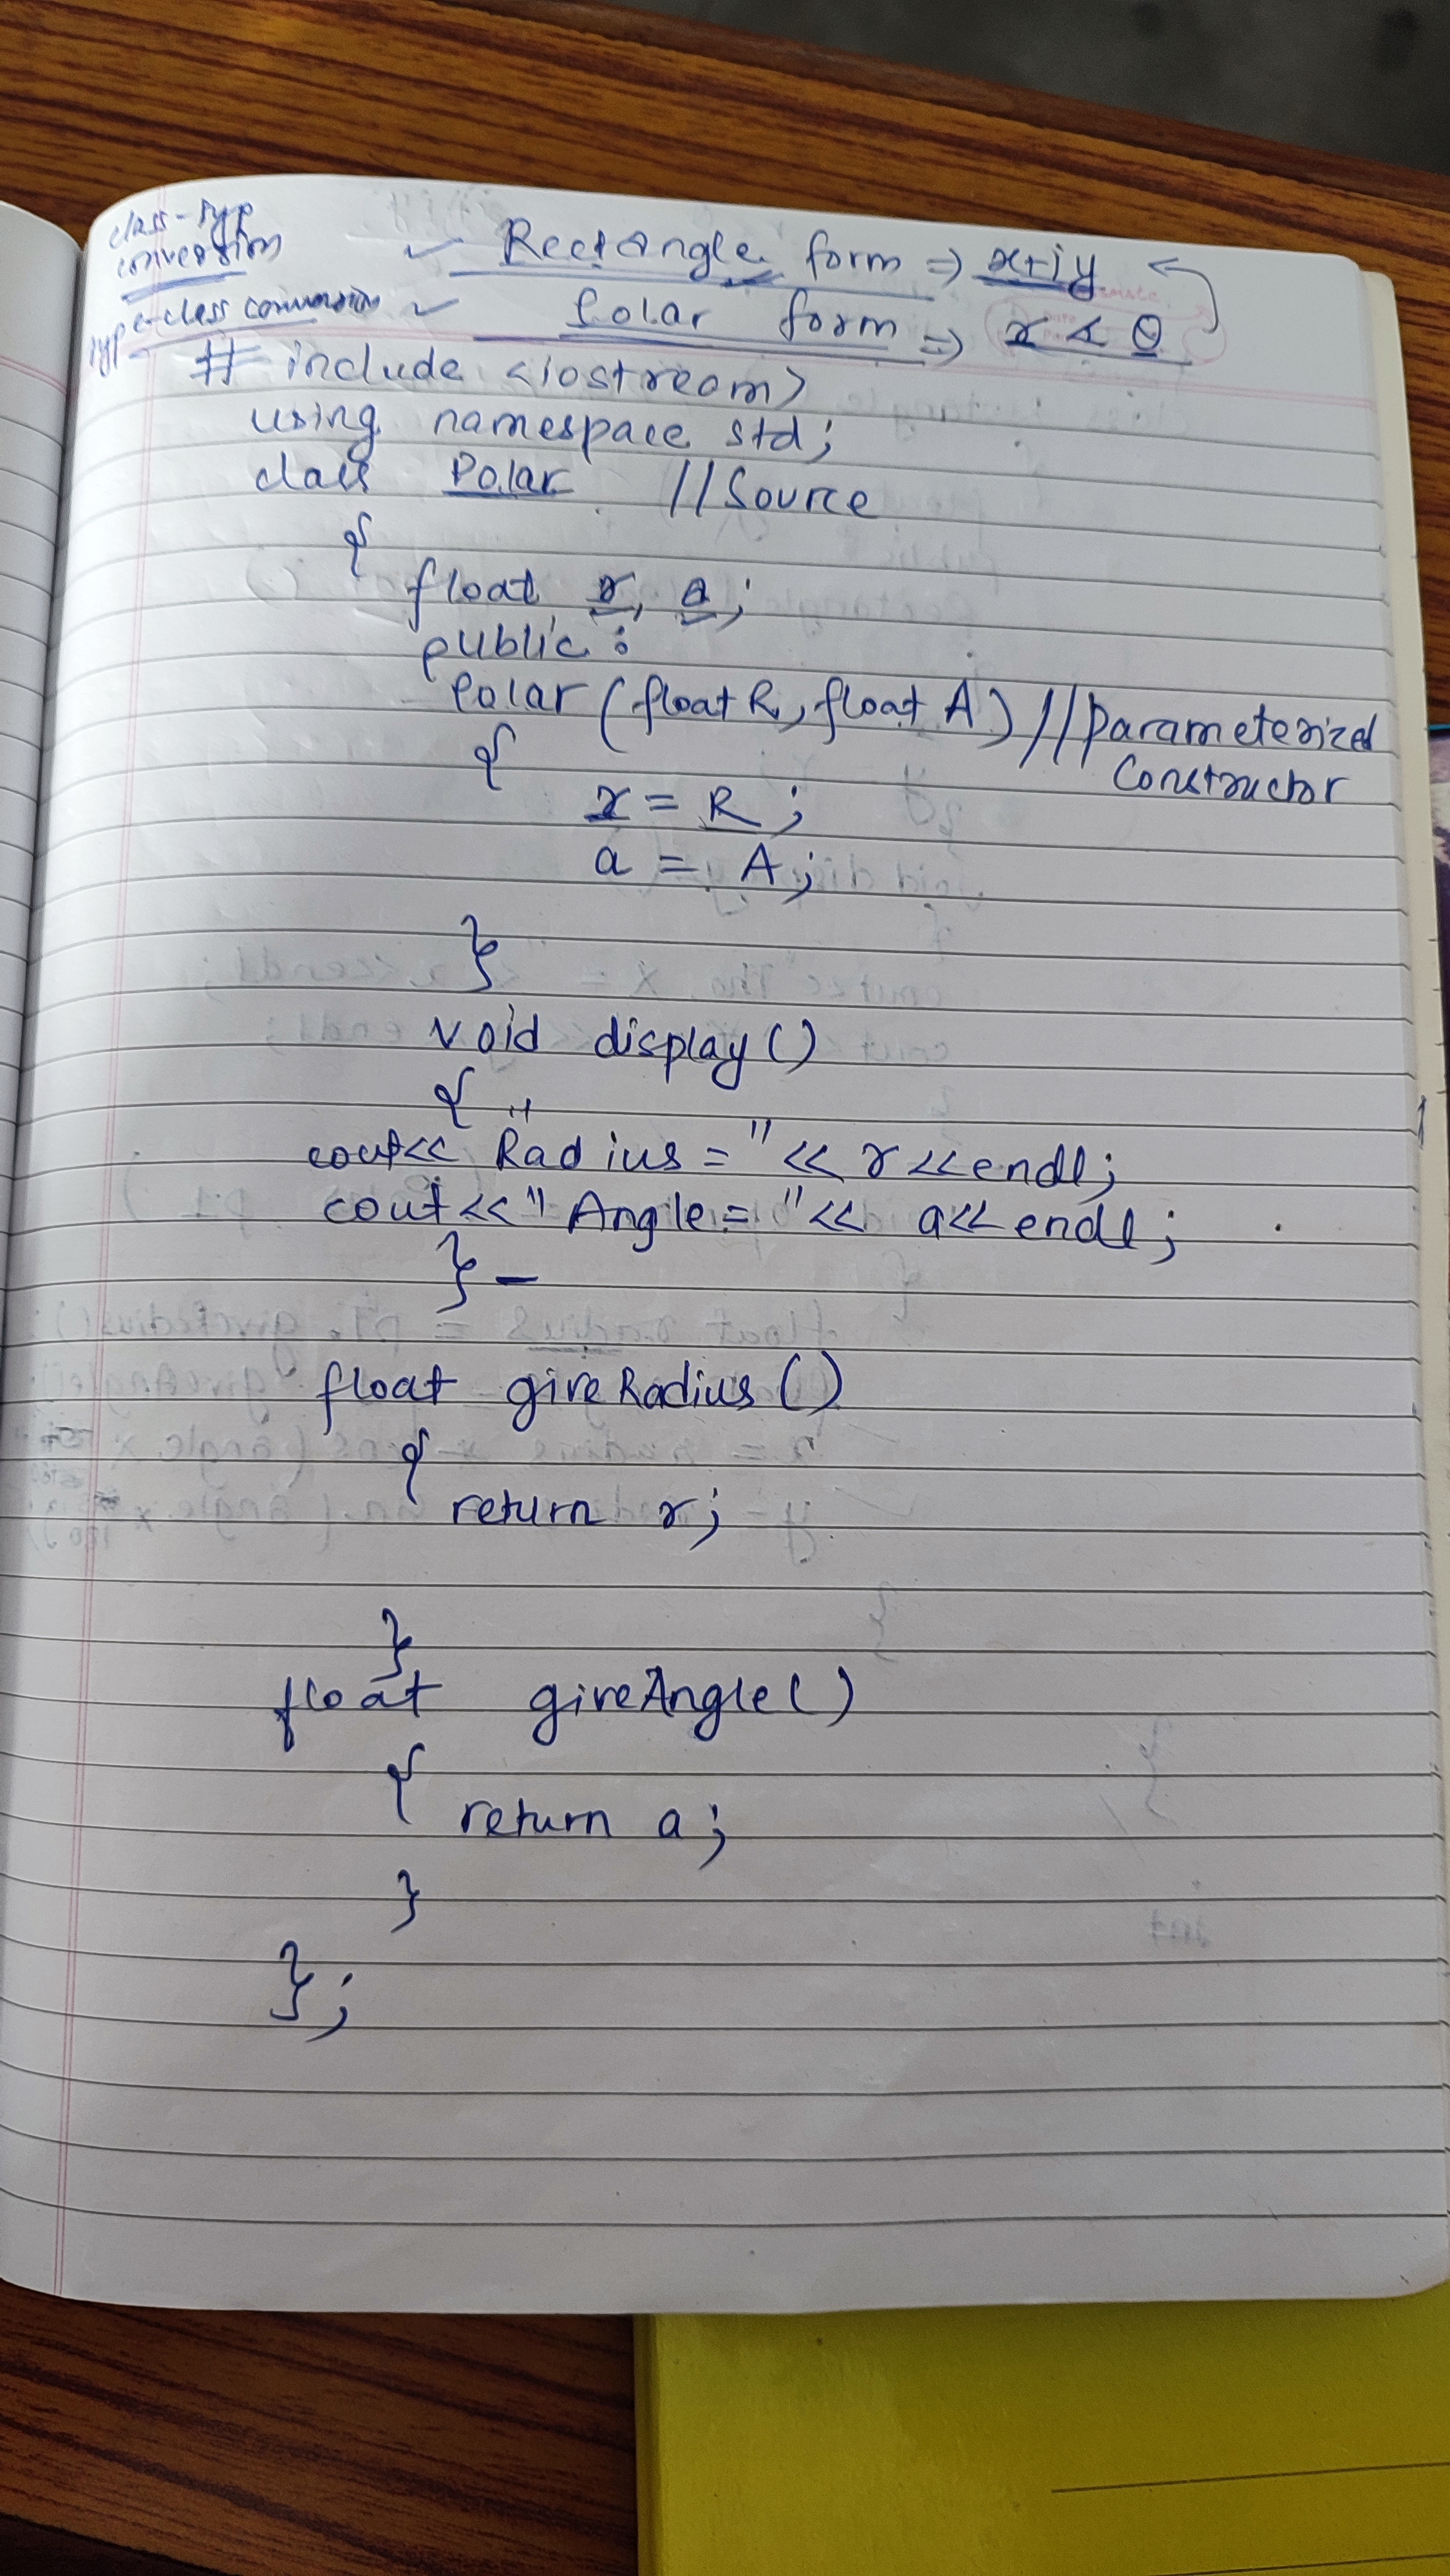 class-typ
conversion
✓ Rectangle form ⇒ x+iy
type-class conversion ✓ Polar form ⇒ r ∠ θ
# include <iostream>
using namespace std;
class Polar //Source
{
float r, a;
public:
Polar (float R, float A) //Parameterized
Constructor
{
r = R;
a = A;
}
void display()
{
cout<< "Radius = "<< r<<endl;
cout<<"Angle = "<< a<<endl;
} –
float giveRadius()
{
return r;
}
float giveAngle()
{
return a;
}
};